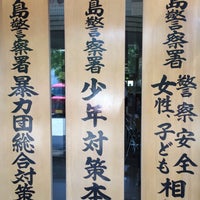 島警察署
警察安全相
女性、子ども
島警察署
少年対策本
島警察署
暴力団総合対策